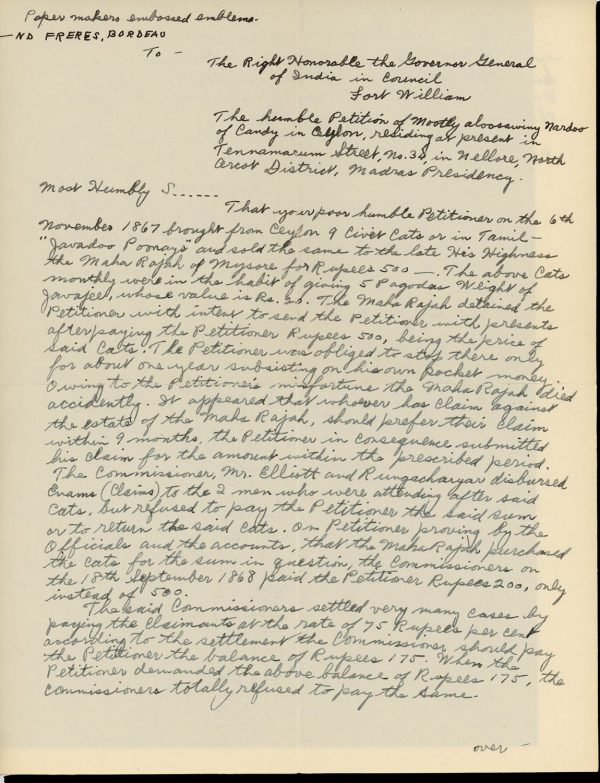 Paper makers embossed emblems-
-ND FRERES, BORDEAU
To -
The Right Honorable the Governor General
of India in Council
Fort William
The humble Petition of Mootly aloosawiny Nardoo
of Candy in Ceylon, residing at present in
Tennamarum Street, No. 34, in Nellore, North
Arcot District, Madras Presidency.
Most Humbly S......
That your poor humble Petitioner on the 6th
November 1867 brought from Ceylon 9 Civet Cats or in Tamil-
"Javadoo Poonays" and sold the same to the late His Highness
the Maha Rajah of Mysore for Rupees 500-. The above Cats
monthly were in the habit of giving 5 Pagodas Weight of
Javajee, whose value is Rs. 20. The Maha Rajah detained the
Petitioner with intent to send the Petitioner with presents
after paying the Petitioner Rupees 500, being the price of
said Cats. The Petitioner was obliged to stop there only
for about one year subsisting on his own pocket money
Owing to the Petitioner's misfortune the Maha Rajah died
accidently. It appeared that whoever has claim against
the estate of the Maha Rajah, should prefer their claim
within 9 months, the Petitioner in consequence submitted
his claim for the amount within the prescribed period.
The Commissioner, Mr. Elliott and Rungschaiyar disbursed
Evams (Claims) to the 2 men who were attending after said
Cats, but refused to pay the Petitioner the said sum
or to return the said Cats. On Petitioner proving by the
Officials and the accounts, that the Maha Rajah purchased
the Cats for the sum in question, the Commissioners on
the 18th September 1868 paid the Petitioner Rupees 200, only
instead of 500.
The said Commissioners settled very many cases by
paying the Claimants at the rate of 75 Rupees per cent
according to the settlement the Commissioner should pay
the Petitioner the balance of Rupees 175. When the
Petitioner demanded the above balance of Rupees 175, the
Commissioners totally refused to pay the same.
over -